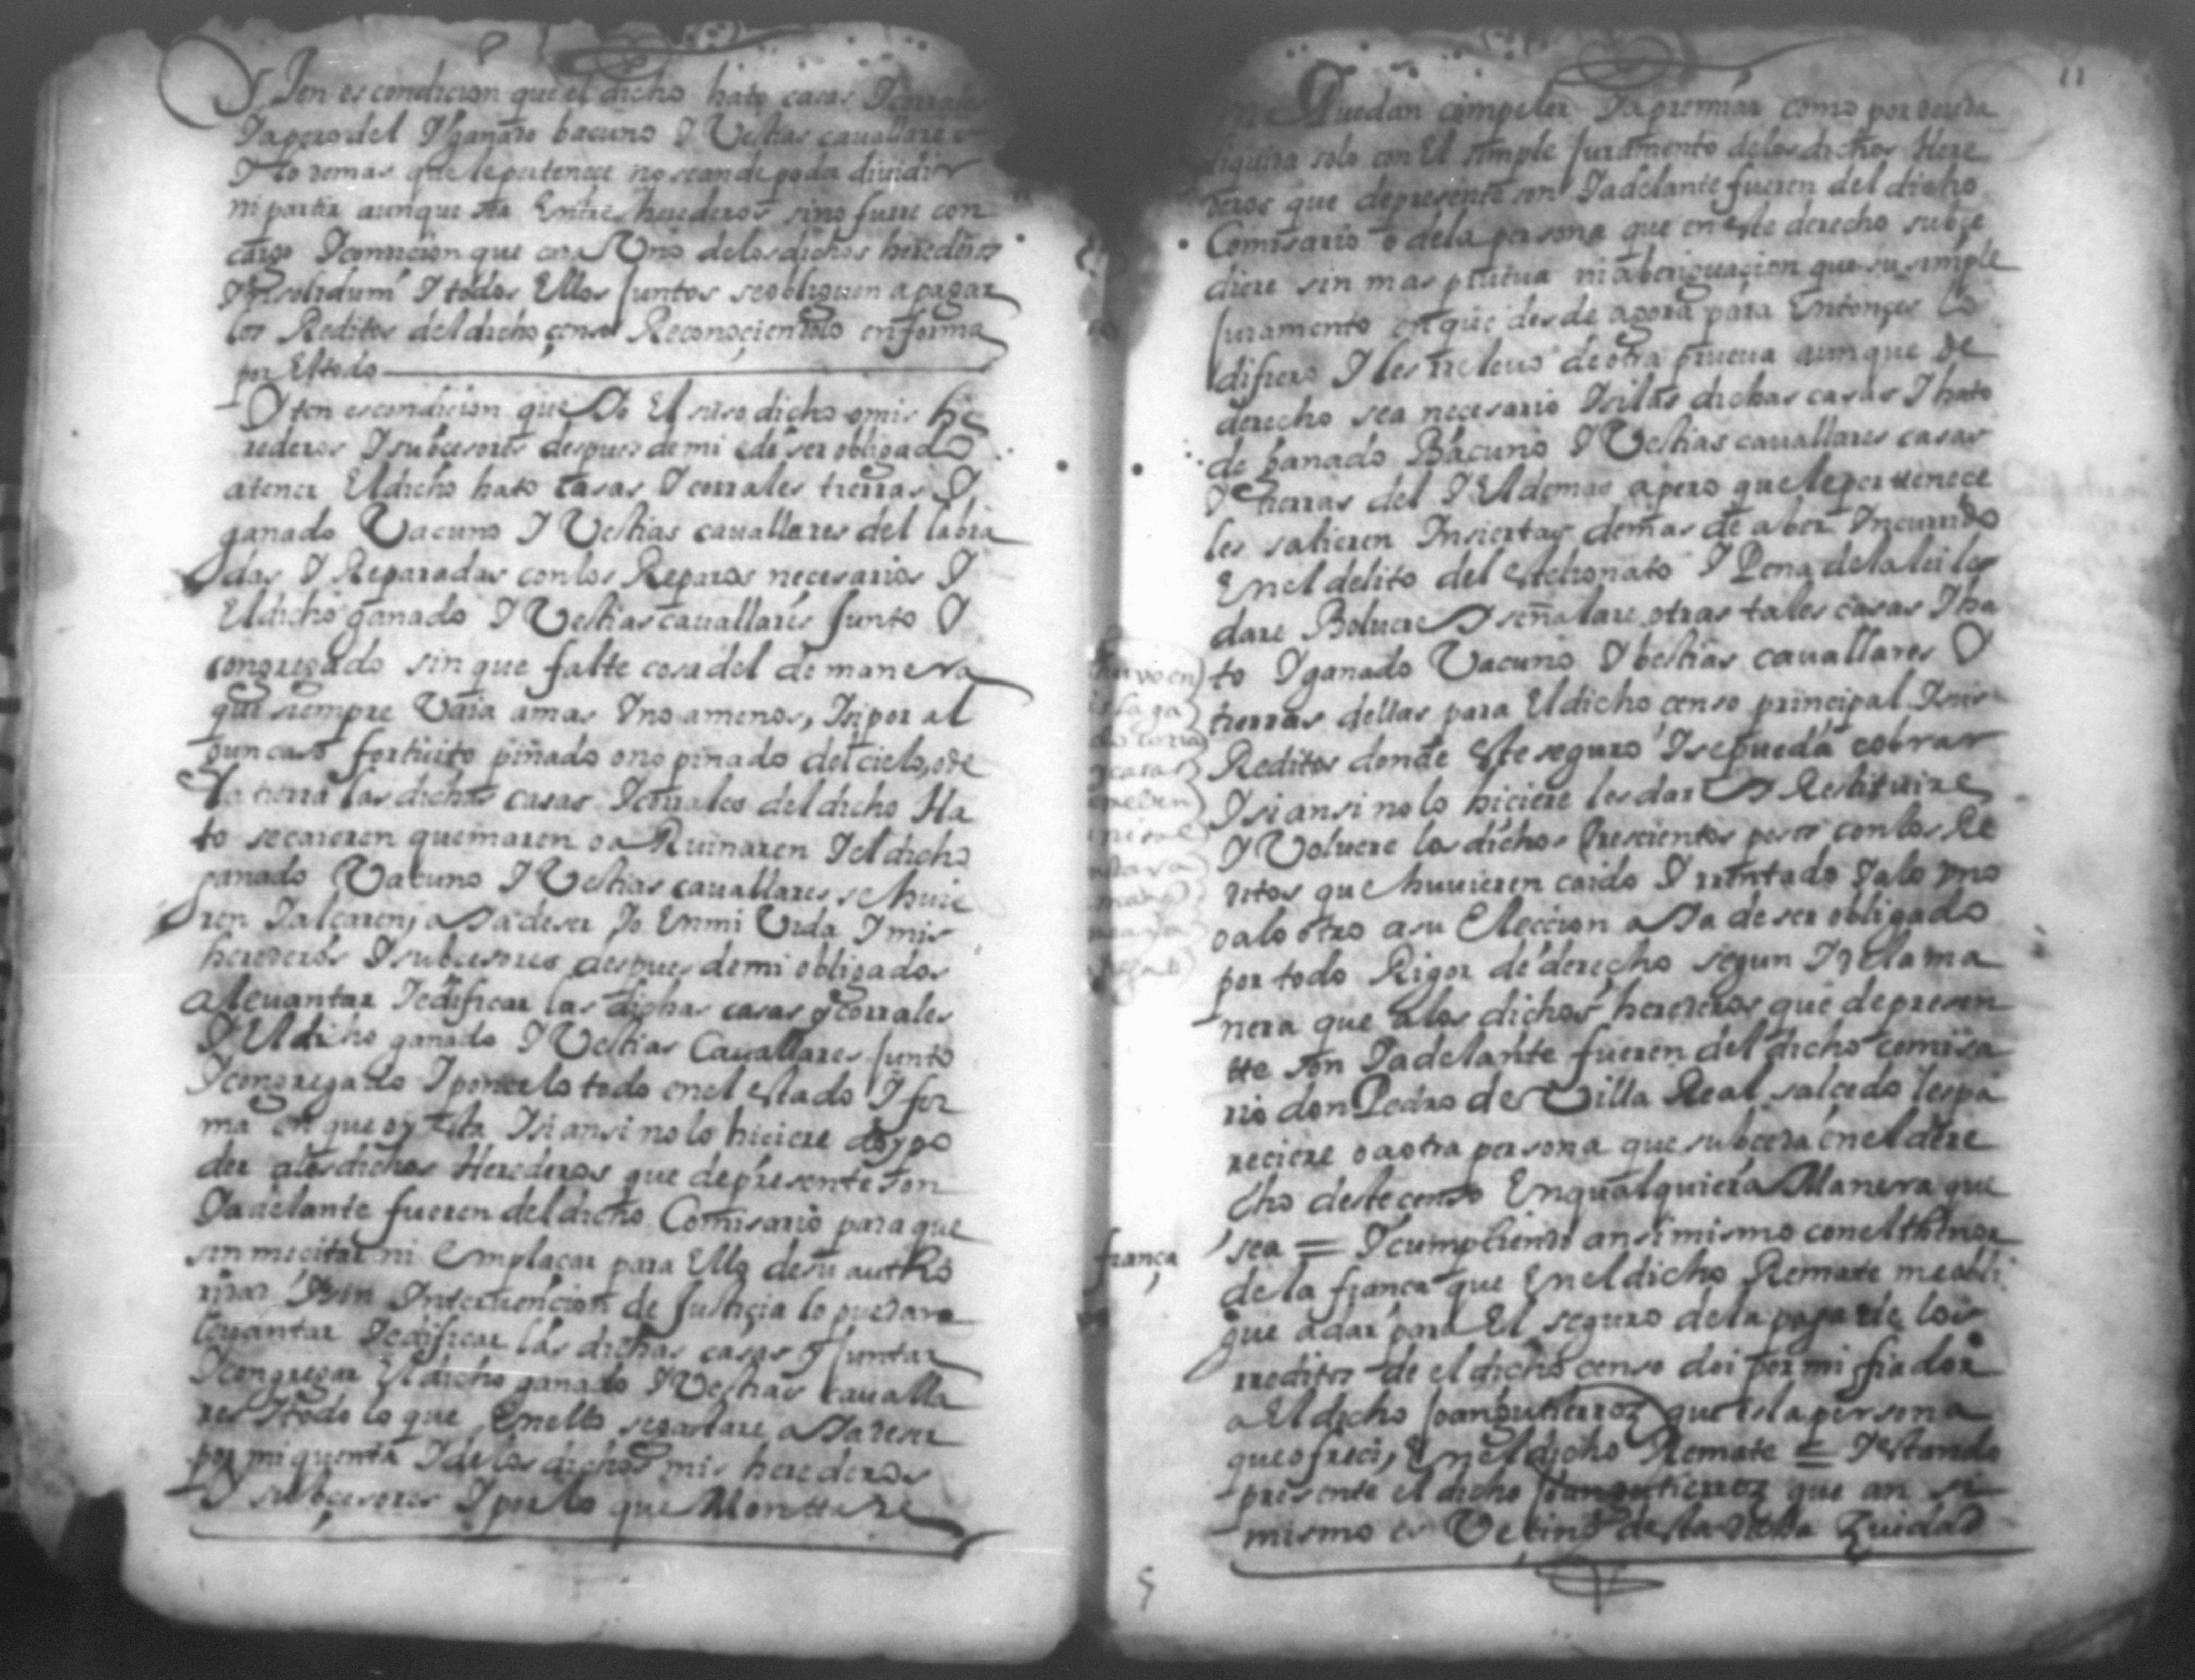 Iten es condicion que el dicho hato casas I corrales
I apero del I ganado bacuno I Vestias cauallares
I lo demas que le pertenece no se an de poder diuidir
ni partir aunque sea Entre herederos sino fuere con
cargo I condicion que cada Uno de los dichos herederos
Insolidum I todos Ellos Juntos se obliguen a pagar
los Reditos del dicho çenso Reconoçiendolo en forma
por El todo
Iten es condicion que Io El suso dicho o mis he
rederos I subcesores despues de mi e de ser obligado
a tener El dicho hato casas I corrales tierras I
ganado Vacuno I Vestias cauallares del labra
das I Reparadas con los Reparos necesarios I
El dicho ganado I Vestias cauallares Junto I
congregado sin que falte cosa del de manera
que siempre Vaia a mas I no a menos, I si por al
gun caso fortuito piñado o no piñado del cielo, o de
la tierra las dichas casas I corrales del dicho Ha
to se caieren quemaren o a Ruinaren I el dicho
ganado Vacuno I Vestias cauallares se huie
ren I alçaren, a Ia de ser Io En mi Vida I mis
herederos I subcesores despues de mi obligados
a leuantar I edificar las dichas casas y corrales
I El dicho ganado I Vestias Cauallares Junto
I congregado I ponerlo todo en el estado I for
ma en que oy esta I si ansi no lo hiciere doy po
der a los dichos Herederos que de presente son
I adelante fueren del dicho Comisario para que
sin me citar ni Emplaçar para Ello de su autho
ridad I sin Interuencion de Justiçia lo puedan
leuantar I edificar las dichas casas y Juntar
I congregar El dicho ganado I Vestias caualla
res I todo lo que En ello se gastare a Ia de ser
por mi quenta I de los dichos mis herederos
I subcesores I por lo que Montare
11
me Puedan compeler I apremiar como por deuda
liquida solo con El simple Juramento de los dichos Here
deros que de presente son I adelante fueren del dicho
Comisario o de la persona que en este derecho subce
diere sin mas prueua ni aberiguacion que su simple
Juramento en que desde agora para Entonçes lo
difiero I les relieuo de otra prueua aunque de
derecho sea necesario I si las dichas casas I hato
de Ganado Bacuno I Vestias cauallares casas
I tierras del I El demas apero que le pertenece
les salieren Insiertas demas de aber Incurrido
En el delito del estelionato I Pena de la lei les
dare Boluere I señalare otras tales casas I ha
to I ganado Vacuno I bestias cauallares I
tierras dellas para El dicho censo principal I sus
Reditos donde Este seguro I se pueda cobrar
I si ansi no lo hiciere les dare I Restituire
I Voluere los dichos trescientos pesos con los Re
ditos que huuieren caido I rrentado I a lo uno
o a lo otro a su Eleccion a Ia de ser obligado
por todo Rigor de derecho segun I en la ma
nera que a los dichos herederos que de presen
te son I adelante fueren del dicho comisa
rio don Pedro de Villa Real salcedo les pa
reciere o a otra persona que subceda en el dere
cho deste censo En qualquiera Manera que
sea = I cumpliendo ansi mismo con el thenor
fiança
de la fiança que En el dicho Remate me obli
gue a dar para El seguro de la paga de los
rreditos de el dicho censo doi por mi fiador
a El dicho Joan gutierrez que es la persona
que ofreci, En el dicho Remate = I estando
presente el dicho Joan gutierrez que an si
mismo es Veçino desta dicha Ziudad